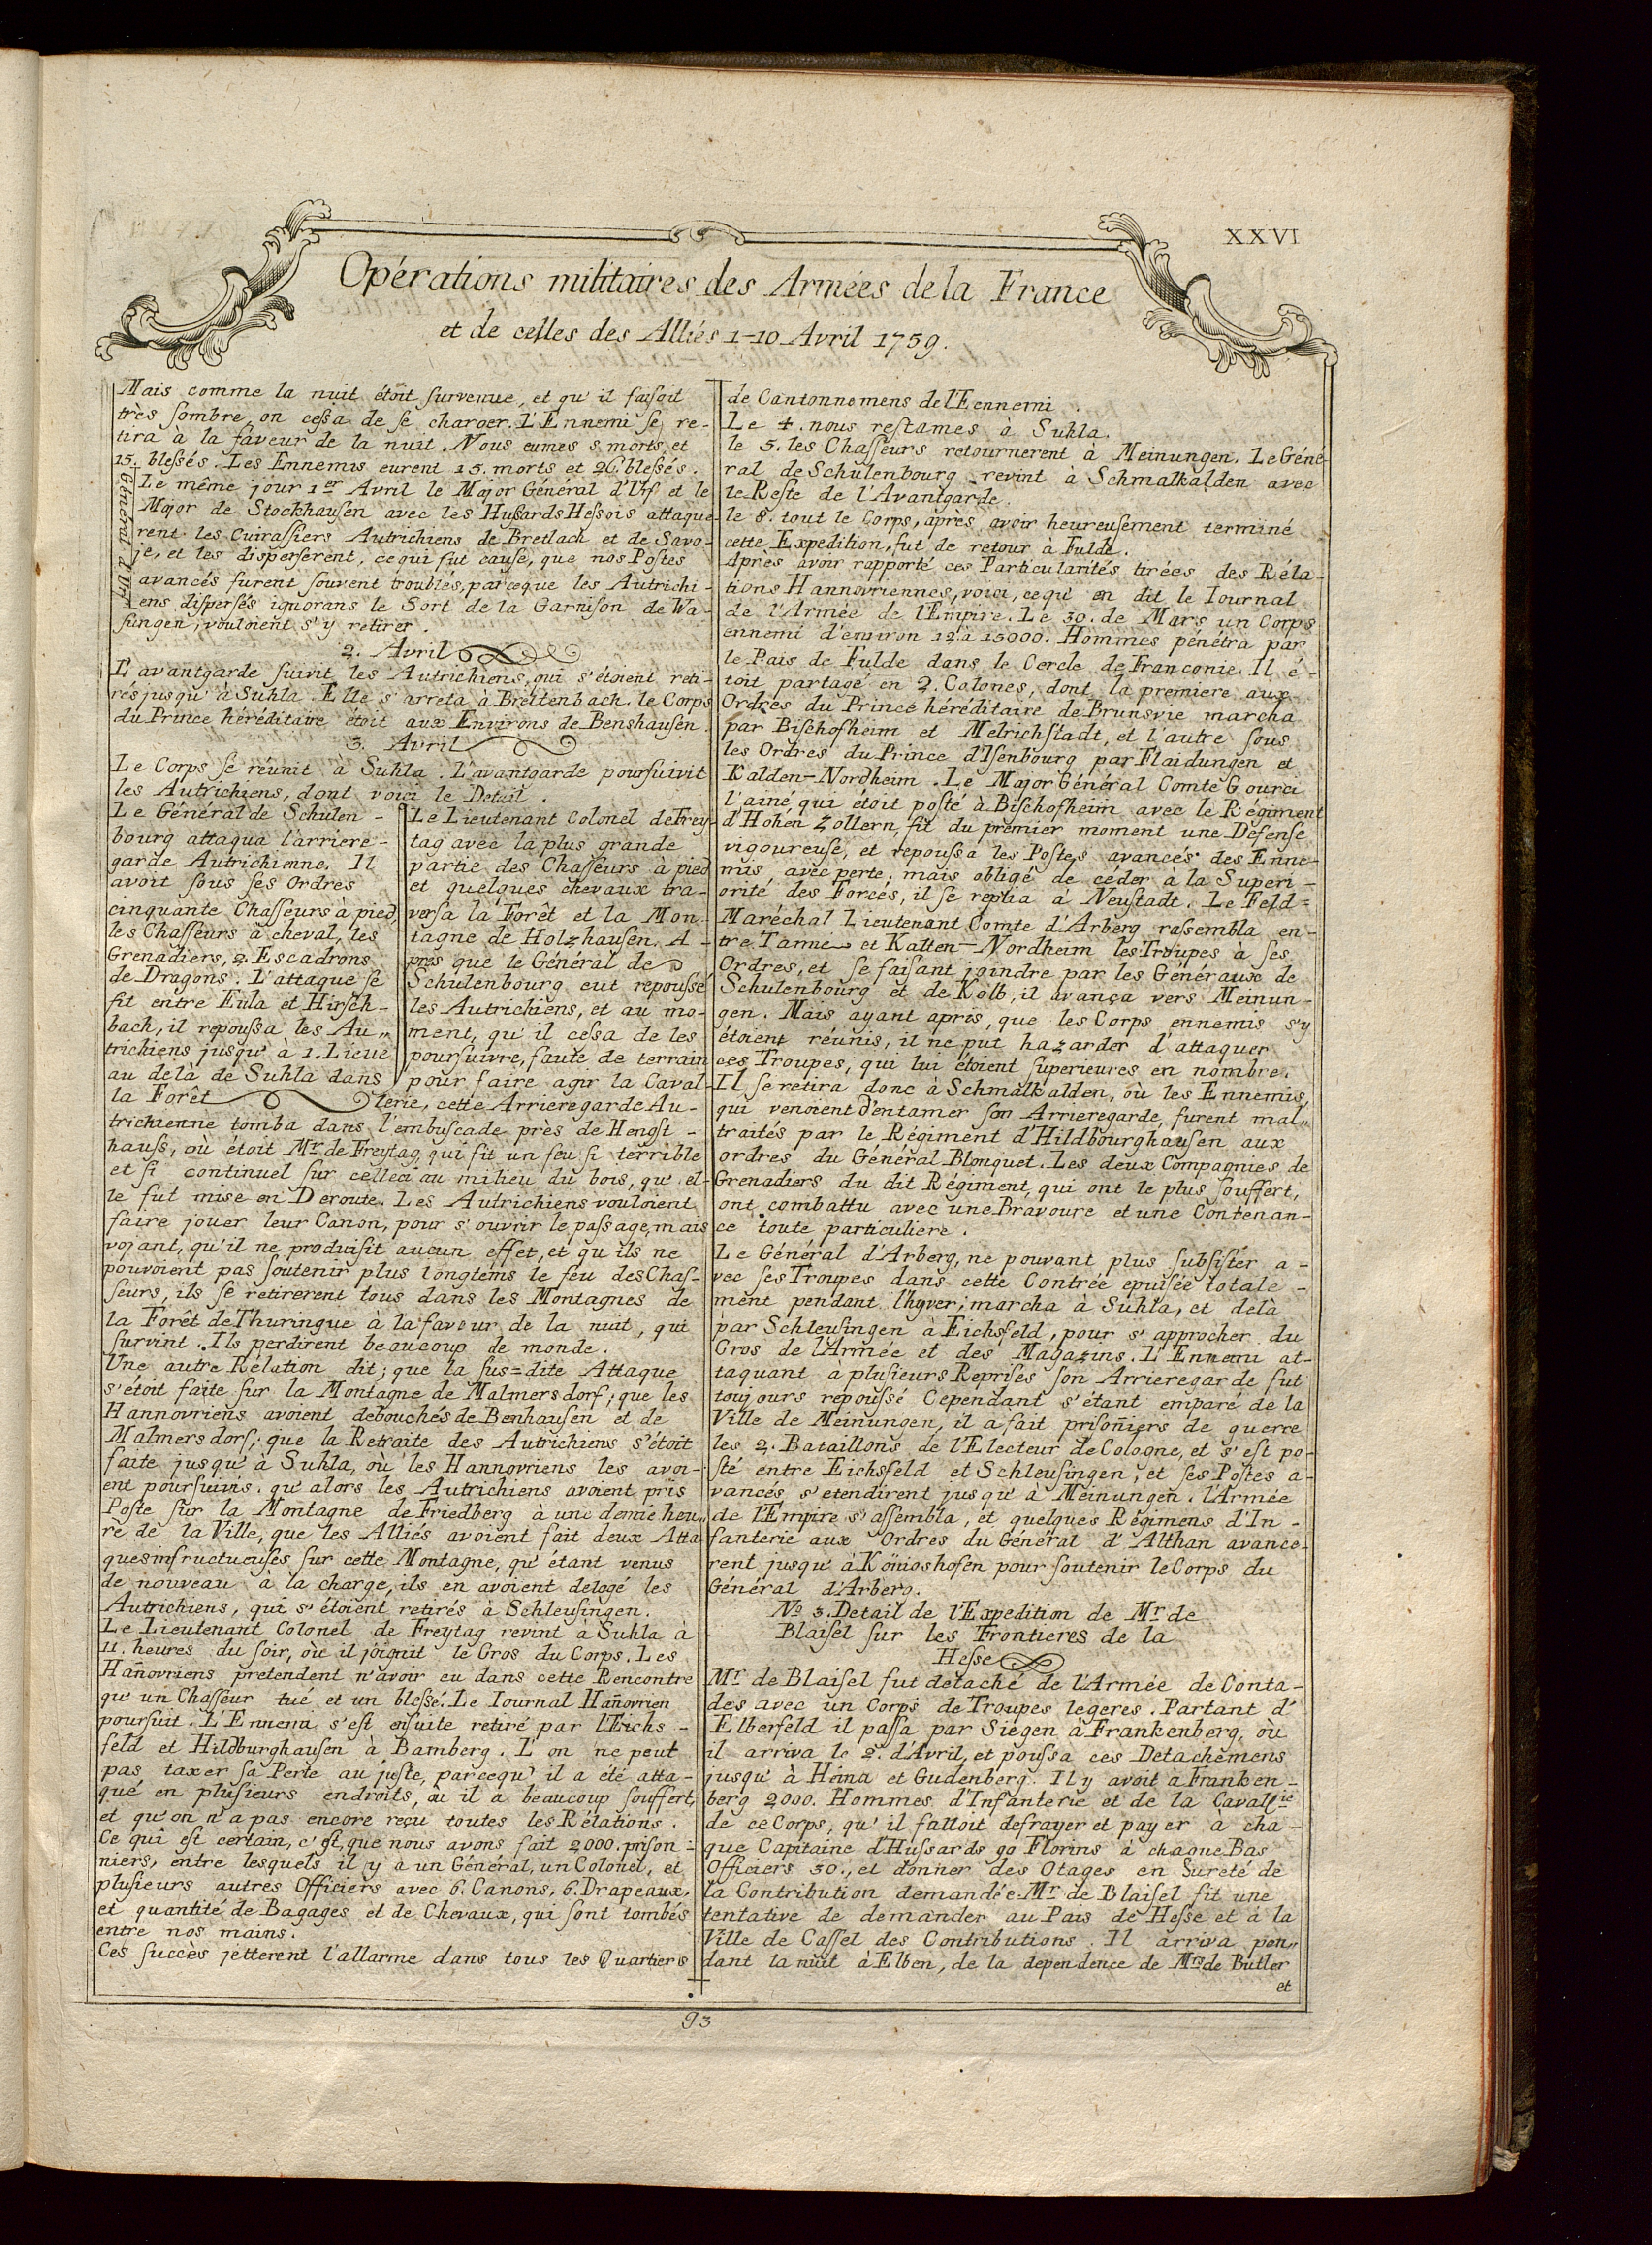 XXVI
Opérations militaires des Armées de la France
et de celles des Alliés 1-10 Avril 1759.
Mais comme la nuit étoit survenue, et qu'il faisoit
très sombre, on cessa de se charger. L'Ennemi se re-
tira à la faveur de la nuit. Nous eumes 8 morts, et
15. blessés. Les Ennemis eurent 15. morts et 26 blessés.
Le même jour 1er Avril le Major Général d'Urf et le
Major de Stockhausen avec les Hussards Hessois attaque-
rent les Cuirassiers Autrichiens de Bretlach et de Savo-
je, et les disperserent, ce qui fut cause, que nos Postes
avancés furent souvent troublés, parceque les Autrichi-
ens dispersés ignorans le Sort de la Garnison de Wa-
sungen, vouloient s'y retirer.
Général d'Urf
2. Avril
L'avantgarde suivit les Autrichiens, qui s'étoient reti-
rés jusqu'à Suhla. Elle s'arreta à Breitenbach. le Corps
du Prince héréditaire étoit aux Environs de Benshausen.
3. Avril
Le Corps se réunit à Suhla. L'avantgarde poursuivit
les Autrichiens, dont voici le Detail.
Le Général de Schulen-
bourg attaqua l'arriere-
garde Autrichienne. Il
avoit sous ses Ordres
cinquante Chasseurs à pied,
les Chasseurs à cheval, les
Grenadiers, 2. Escadrons
de Dragons. L'attaque se
fit entre Eula et Hirsch-
bach, il repoussa les Au„
trichiens jusqu'à 1. Lieue
au delà de Suhla dans
la Forêt
Le Lieutenant Colonel de Frey-
tag avec la plus grande
partie des Chasseurs à pied
et quelques chevaux tra-
versa la Forêt et la Mon-
tagne de Holzhausen. A-
près que le Général de
Schulenbourg eut repoussé
les Autrichiens, et au mo-
ment, qu'il cessa de les
poursuivre, faute de terrain
pour faire agir la Caval-
lerie, cette Arrieregarde Au-
trichienne tomba dans l'embuscade près de Hengst-
hauss, où étoit Mr. de Freytag, qui fit un feu si terrible
et si continuel sur celleci au milieu du bois, qu'el-
le fut mise en Deroute. Les Autrichiens vouloient
faire jouer leur Canon, pour s'ouvrir le passage, mais
vojant, qu'il ne produisit aucun effet, et qu'ils ne
pouvoient pas soutenir plus longtems le feu des Chas-
seurs, ils se retirerent tous dans les Montagnes de
la Forêt de Thuringue à la faveur de la nuit, qui
survint. Ils perdirent beaucoup de monde.
Une autre Rélation dit; que la sus=dite Attaque
s'étoit faite sur la Montagne de Malmersdorf; que les
Hannovriens avoient debouchés de Benhausen et de
Malmersdorf; que la Retraite des Autrichiens s'étoit
faite jusqu'à Suhla, où les Hannovriens les avoi-
ent poursuivis. qu'alors les Autrichiens avoient pris
Poste sur la Montagne de Friedberg à une demie heu„
re de la Ville, que les Alliés avoient fait deux Atta-
ques infructueuses sur cette Montagne, qu'étant venus
de nouveau à la charge, ils en avoient delogé les
Autrichiens, qui s'étoient retirés à Schleusingen.
Le Lieutenant Colonel de Freytag revint à Suhla à
11. heures du soir, où il joignit le Gros du Corps. Les
Hañovriens pretendent n'avoir eu dans cette Rencontre
qu'un Chasseur tué et un blessé. Le Iournal Hañovrien
poursuit. L'Ennemi s'est ensuite retiré par l'Eichs-
feld et Hildburghausen à Bamberg. L'on ne peut
pas taxer sa Perte au juste, parcequ'il a été atta-
qué en plusieurs endroits, où il a beaucoup souffert,
et qu'on n'a pas encore reçu toutes les Rélations.
Ce qui est certain, c'est, que nous avons fait 2000. prison-
niers, entre lesquels il y a un Général, un Colonel, et
plusieurs autres Officiers avec 6. Canons, 6. Drapeaux,
et quantité de Bagages et de Chevaux, qui sont tombés
entre nos mains.
Ces succès jetterent l'allarme dans tous les Quartiers
de Cantonnemens de l'Eennemi.
Le 4. nous restames à Suhla.
le 5. les Chasseurs retournerent à Meinungen. Le Géné-
ral de Schulenbourg revint à Schmalkalden avec
le Reste de l'Avantgarde.
le 8. tout le Corps, après avoir heureusement terminé
cette Expedition, fut de retour à Fulde.
Après avoir rapporté ces Particularités tirées des Réla-
tions Hannovriennes, voici, ce qu'en dit le Iournal
de l'Armée de l'Empire. Le 30. de Mars un Corps
ennemi d'environ 12. à 15000. Hommes pénétra par
le Païs de Fulde dans le Cercle de Franconie. Il é-
toit partagé en 2. Colones, dont la premiere aux
Ordres du Prince héréditaire de Brunsvic marcha
par Bischofheim et Melrichstadt, et l'autre sous
les Ordres du Prince d'Isenbourg par Flaidungen et
Kalden-Nordheim. Le Major Général Comte Gourci
l'ainé, qui étoit posté à Bischofheim avec le Régiment
d'Hohen Zollern, fit du premier moment une Defense
vigoureuse, et repoussa les Postes avancés des Enne-
mis, avec perte; mais obligé de céder à la Superi-
orité des Forcés, il se replia à Neustadt. Le Feld=
Maréchal Lieutenant Comte d'Arberg rassembla en-
tre Tanne et Kalten-Nordheim les Troupes à ses
Ordres, et se faisant joindre par les Généraux de
Schulenbourg et de Kolb, il avança vers Meinun-
gen. Mais ayant apris, que les Corps ennemis s'y
étoient réunis, il ne put hazarder d'attaquer
ces Troupes, qui lui étoient superieures en nombre.
Il se retira donc à Schmalkalden, où les Ennemis,
qui venoient d'entamer son Arrieregarde, furent mal„
traités par le Régiment d'Hildbourghausen aux
ordres du Général Blonquet. Les deux Compagnies de
Grenadiers du dit Régiment, qui ont le plus souffert,
ont combattu avec une Bravoure et une Contenan-
ce toute particuliere.
Le Général d'Arberg, ne pouvant plus subsister a-
vec ses Troupes dans cette Contrée epuisée totale-
ment pendant l'hyver; marcha à Suhla, et delà
par Schleusingen à Eichsfeld, pour s'approcher du
Gros de l'Armée et des Magazins. L'Ennemi at-
taquant à plusieurs Reprises son Arrieregarde fut
toujours repoussé Cependant s'étant emparé de la
Ville de Meinungen, il a fait prisoñiers de guerre
les 2. Bataillons de l'Electeur de Cologne, et s'est po-
sté entre Eichsfeld et Schleusingen, et ses Postes a-
vancés s'etendirent jusqu'à Meinungen. l'Armée
de l'Empire s'assembla, et quelques Régimens d'In-
fanterie aux Ordres du Général d'Althan avance-
rent jusqu'à Königshofen pour soutenir le Corps du
Général d'Arberg.
No 3. Detail de l'Expedition de Mr. de
Blaisel sur les Frontieres de la
Hesse
Mr. de Blaisel fut detaché de l'Armée de Conta-
des avec un Corps de Troupes legeres. Partant d'
Elberfeld il passa par Siegen à Frankenberg, où
il arriva le 2. d'Avril, et poussa ces Detachemens
jusqu'à Heina et Gudenberg. Il y avoit à Franken-
berg 2000. Hommes d'Infanterie et de la Cavallie
de ce Corps, qu'il falloit defrayer et payer a cha-
que Capitaine d'Hussards 90 Florins à chaque Bas
Officiers 30., et donner des Otages en Sureté de
la Contribution demandée. Mr. de Blaisel fit une
tentative de demander au Païs de Hesse et à la
Ville de Cassel des Contributions. Il arriva pen„
dant la nuit à Elben, de la dependence de Mrs de Butler
et
93